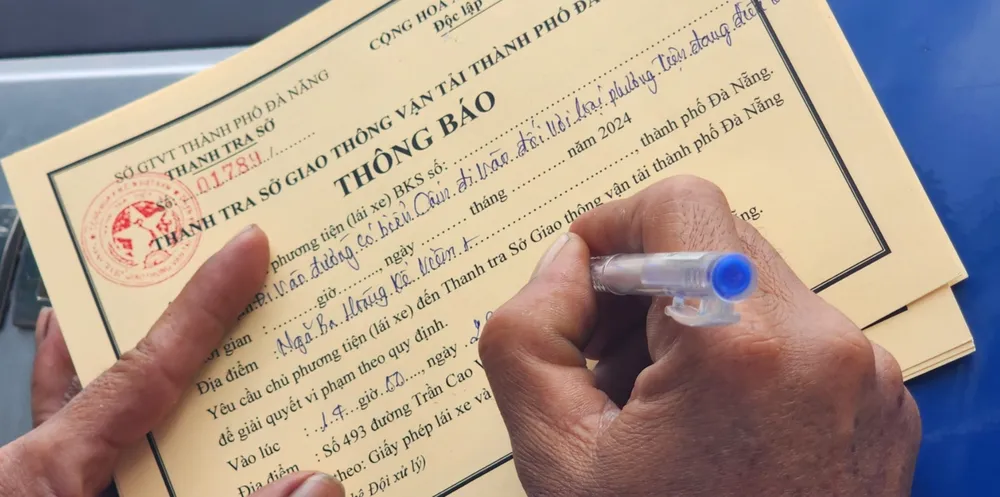 CỘNG HOÀ
Độc lập
SỞ GTVT THÀNH PHỐ ĐÀ NẴNG
THANH TRA SỞ
Số: 01789/
THANH TRA SỞ GIAO THÔNG VẬN TẢI THÀNH PHỐ ĐÀ
THÔNG BÁO
phương tiện (lái xe) BKS số:
đi vào đường có biển cấm đi vào đối với loại phương tiện đang điều
gian : giờ ngày tháng năm 2024
Địa điểm : Ngã Ba Hoàng Kế Viêm, thành phố Đà Nẵng.
Yêu cầu chủ phương tiện (lái xe) đến Thanh tra Sở Giao thông vận tải thành phố Đà Nẵng
để giải quyết vi phạm theo quy định.
Vào lúc : giờ 00, ngày
Địa điểm : Số 493 đường Trần Cao
theo: Giấy phép lái xe và
Đội xử lý)